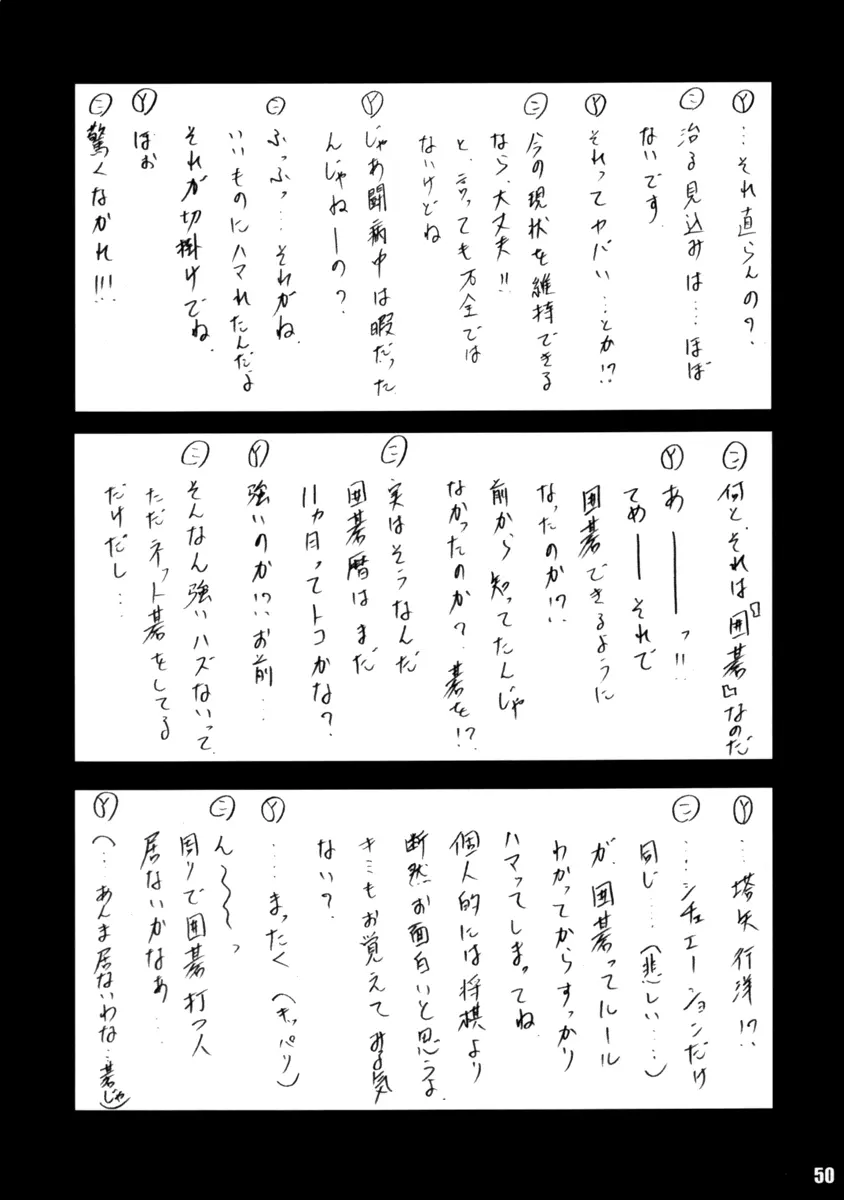 Ⓨ …それ直らんの?
㊁ 治る見込みは…ほぼ
ないです
Ⓨ それってヤバい…とか!?
㊁ 今の現状を維持できる
なら、大丈夫!!
と、言っても万全では
ないけどね
Ⓨ じゃあ闘病中は暇だった
んじゃねーの?
㊁ ふっふっ…それがね
いいものにハマれたんだよ
それが切掛けでね
Ⓨ ほぉ
㊁ 驚くなかれ!!!
㊁ 何と、それは『囲碁』なのだ
Ⓨ あ――っ!!
てめーそれで
囲碁できるように
なったのか!?
前から知ってたんじゃ
なかったのか?碁を!?
㊁ 実はそうなんだ
囲碁暦はまだ
11ヵ月ってトコかな?
Ⓨ 強いのか!?お前…
㊁ そんなん強いハズないって
ただネット碁をしてる
だけだし…
Ⓨ …塔矢行洋!?
㊁ …シチュエーションだけ
同じ…(悲しい…)
が、囲碁ってルール
わかってからすっかり
ハマってしまってね
個人的には将棋より
断然お面白いと思うよ
キミもお覚えてみる気
ない?
Ⓨ ……まったく(キッパリ)
㊁ ん~~~っ
周りで囲碁打つ人
居ないかなぁ…
Ⓨ (…あんま居ないわな…碁じゃ)
50